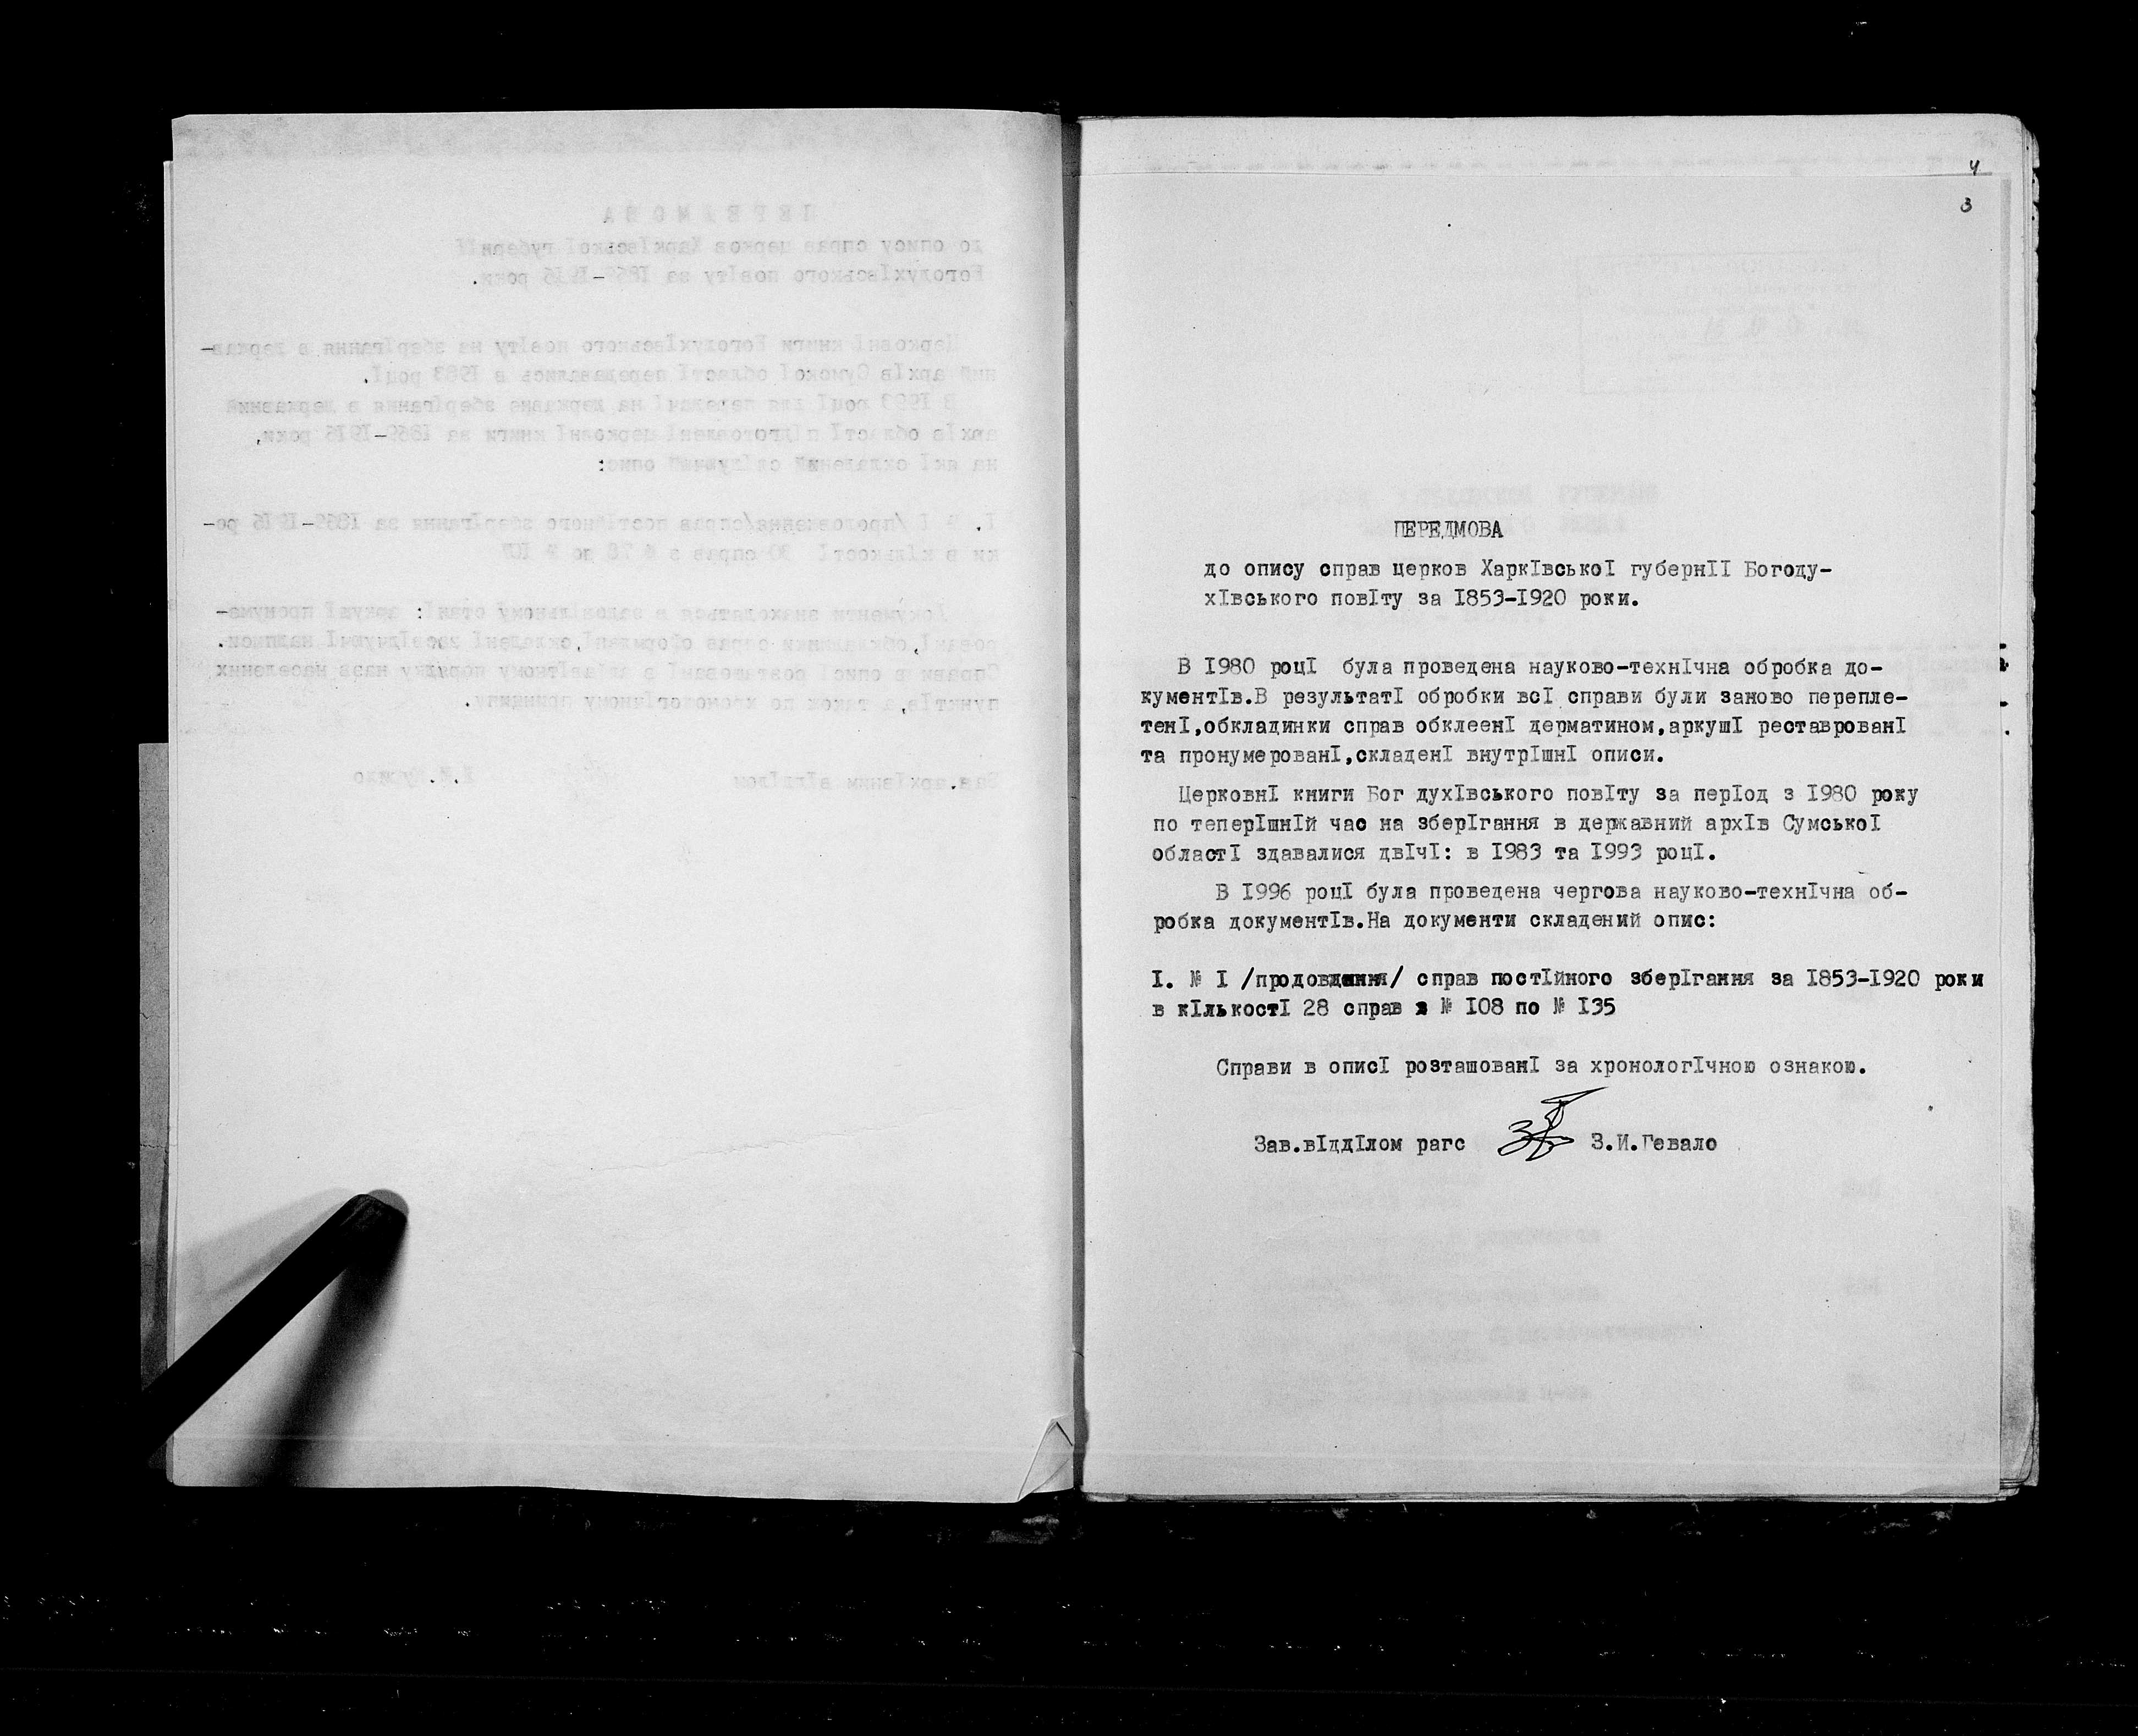 4
3
ПЕРЕДМОВА
до опису справ церков ХаркІвськоІ губернІІ Богоду-
хІвського повІту за І853-І920 роки.
В І980 роцІ була проведена науково-технІчна обробка до-
кументІв.В результатІ обробки всІ справи були заново перепле-
тенІ,обкладинки справ обклеенІ дерматином,аркушІ реставрованІ
та пронумерованІ,складенІ внутрІшнІ описи.
ЦерковнІ книги Бог духІвського повІту за перІод з І980 року
по теперІшнІй час на зберІгання в державний архІв СумськоІ
областІ здавалися двІчІ: в І983 та І993 роцІ.
В І996 роцІ була проведена чергова науково-технІчна об-
робка документІв.На документи складений опис:
І. № І /продовдення/ справ постІйного зберІгання за І853-І920 роки
в кІлькостІ 28 справ з № І08 по № І35
Справи в описІ розташованІ за хронологІчною ознакою.
Зав.вІддІлом рагс З.И.Гевало